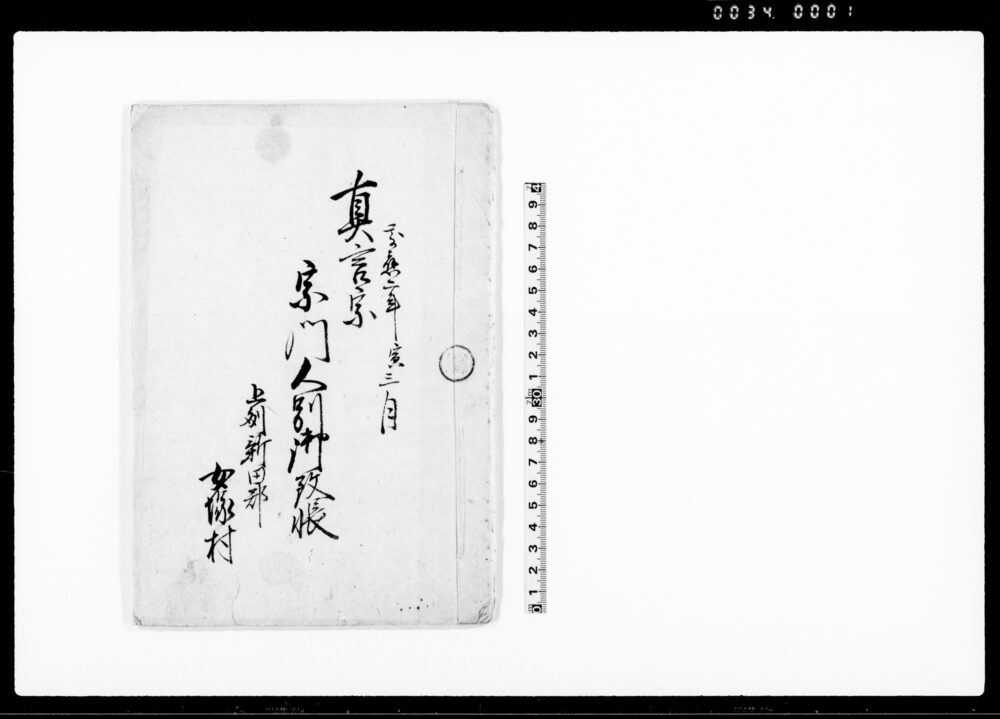 0034 0001
慶應二年寅三月
真言宗
宗門人別御改帳
上州新田郡
女塚村
0 1 2 3 4 5 6 7 8 9 30 1 2 3 4 5 6 7 8 9 4